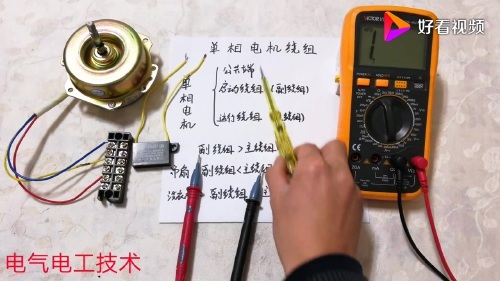 好看视频
VICTOR
单相电机绕组
单相电机
公共端
启动绕组 (副绕组)
运行绕组 绕组)
副绕组>主绕组
吊扇 副绕组<主绕组
副绕组
20A
mA
COM
电气电工技术